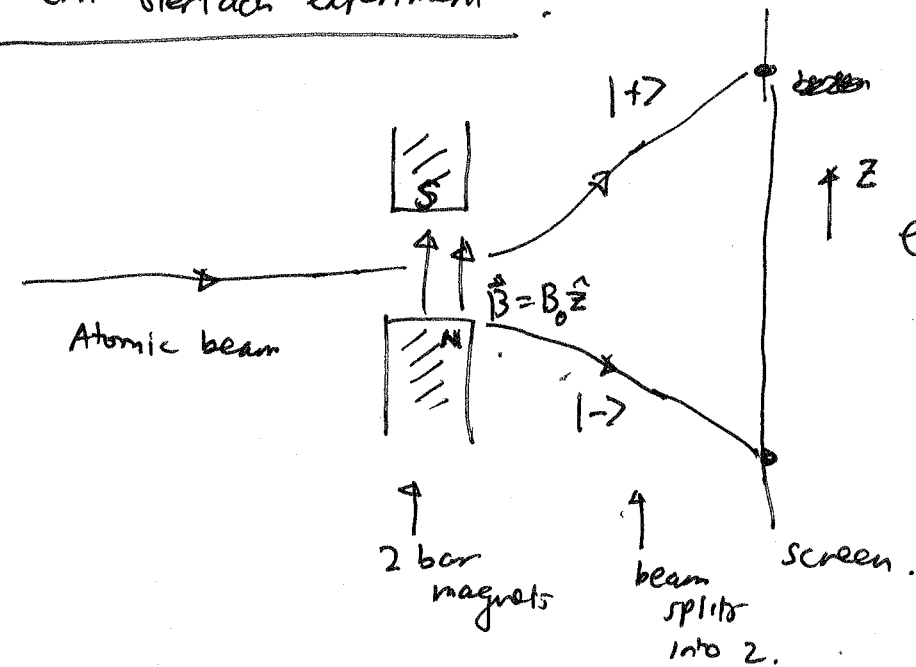 Sterlach experiment.
|+>
S
Z
B⃗ = B₀ẑ
Atomic beam
N
|->
2 bar
magnets
beam
splits
into 2.
screen.